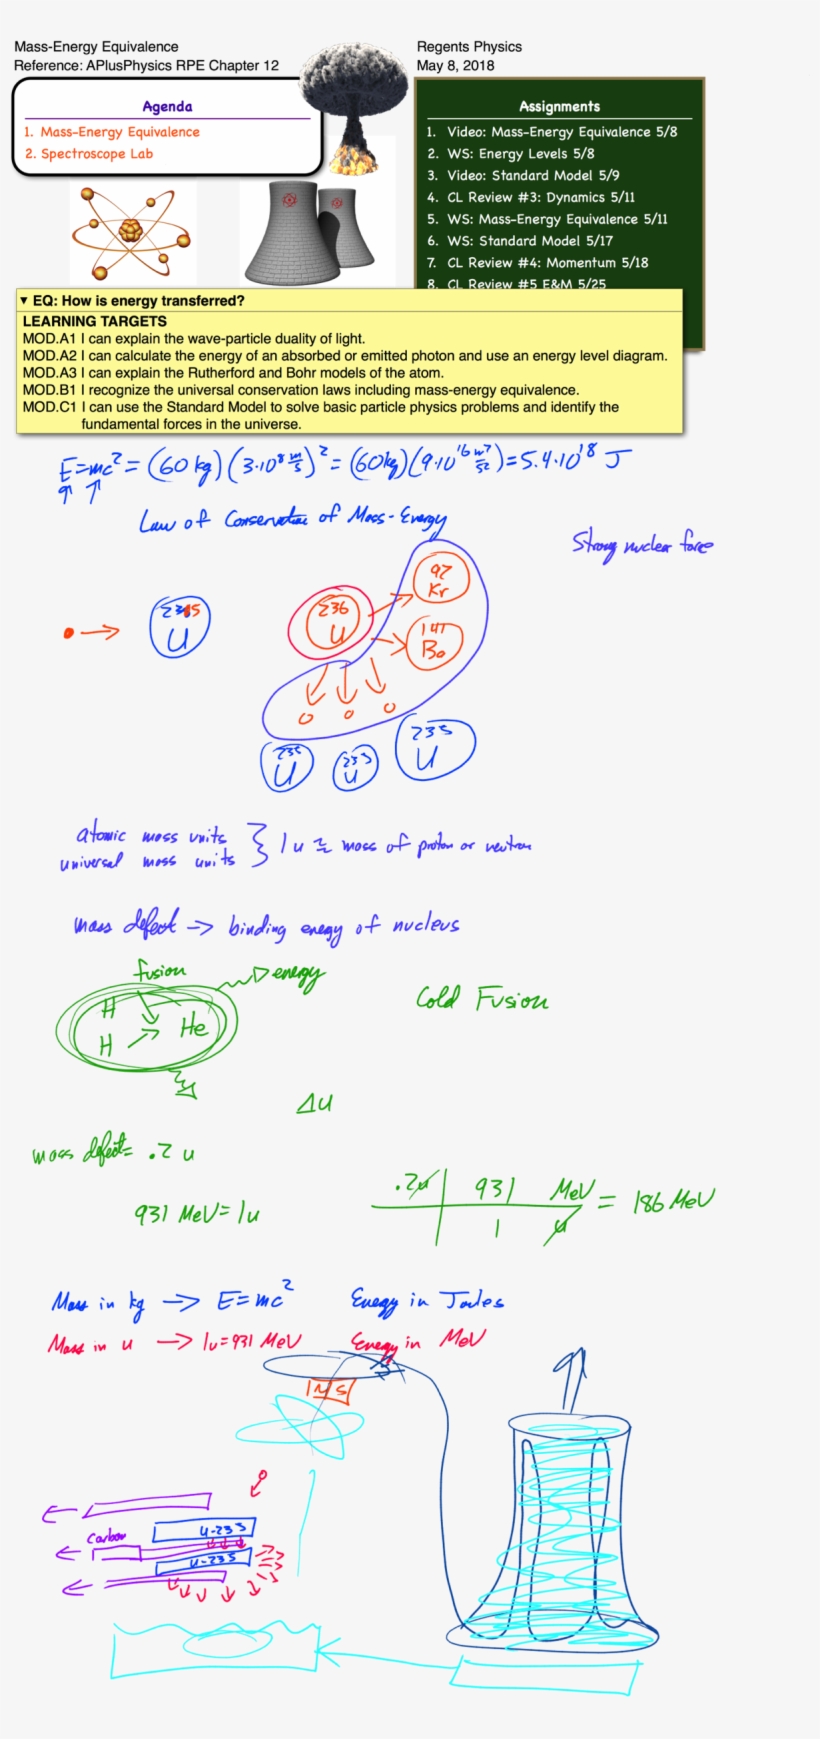 Mass-Energy Equivalence
Reference: APlusPhysics RPE Chapter 12
Regents Physics
May 8, 2018
Agenda
1. Mass-Energy Equivalence
2. Spectroscope Lab
Assignments
1. Video: Mass-Energy Equivalence 5/8
2. WS: Energy Levels 5/8
3. Video: Standard Model 5/9
4. CL Review #3: Dynamics 5/11
5. WS: Mass-Energy Equivalence 5/11
6. WS: Standard Model 5/17
7. CL Review #4: Momentum 5/18
8. CL Review #5 E&M 5/25
▼ EQ: How is energy transferred?
LEARNING TARGETS
MOD.A1 I can explain the wave-particle duality of light.
MOD.A2 I can calculate the energy of an absorbed or emitted photon and use an energy level diagram.
MOD.A3 I can explain the Rutherford and Bohr models of the atom.
MOD.B1 I recognize the universal conservation laws including mass-energy equivalence.
MOD.C1 I can use the Standard Model to solve basic particle physics problems and identify the
fundamental forces in the universe.
E=mc² = (60 kg)(3·10⁸ m/s)² = (60kg)(9·10¹⁶ m²/s²)=5.4·10¹⁸ J
Law of Conservation of Mass-Energy
Strong nuclear force
92
Kr
235
U
236
U
141
Ba
235
U
235
U
235
U
atomic mass units
universal mass units
1u ≈ mass of proton or neutron
mass defect → binding energy of nucleus
fusion
energy
H
H
He
Cold Fusion
Δu
mass defect= .2 u
931 MeV=1u
.2u 931 MeV = 186 MeV
1 u
Mass in kg → E=mc² Energy in Joules
Mass in u → 1u=931 MeV Energy in MeV
Carbon
U-235
U-235